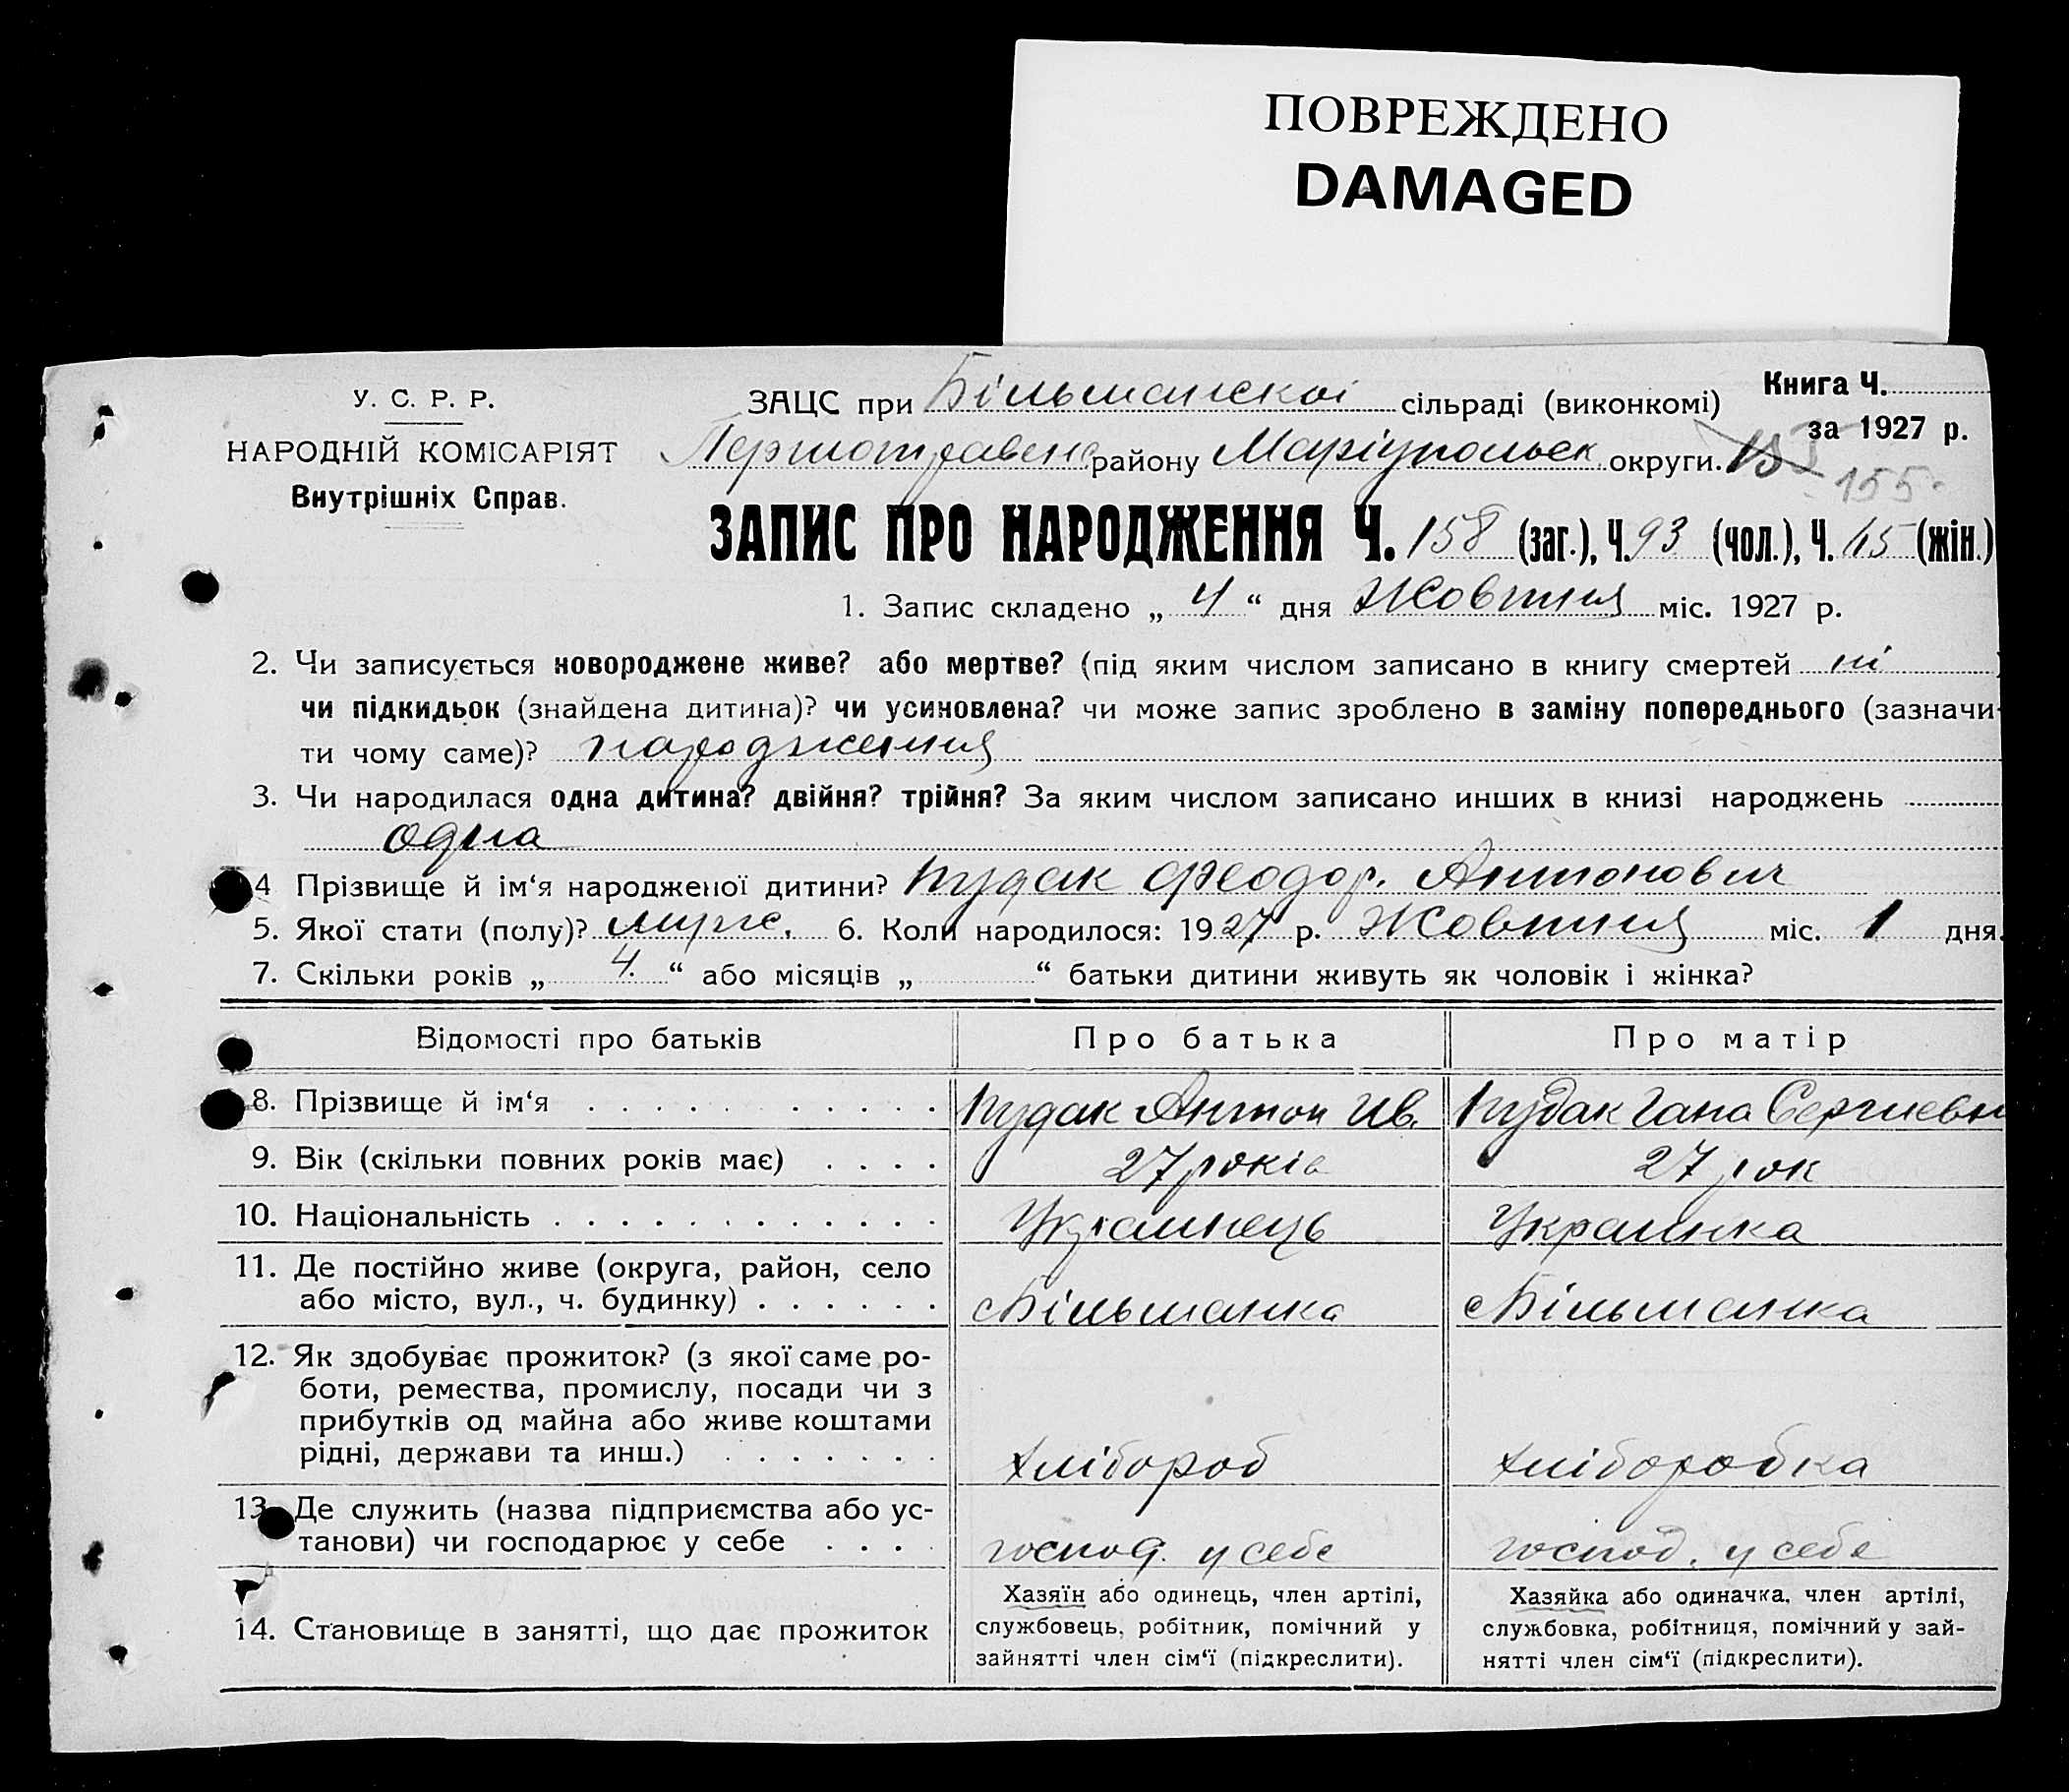 ПОВРЕЖДЕНО
DAMAGED
У. С. Р. Р.
НАРОДНІЙ КОМІСАРІЯТ
Внутрішніх Справ.
ЗАЦС при Більманскої сільраді (виконкомі)
Книга Ч.
за 1927 р.
Першотравенс району Маріупольск. округи.
155.
ЗАПИС ПРО НАРОДЖЕННЯ Ч. 158 (заг.), Ч. 93 (чол.), Ч. 65 (жін.)
1. Запис складено „ 4 “ дня Жовтня міс. 1927 р.
2. Чи записується новороджене живе? або мертве? (під яким числом записано в книгу смертей ні )
чи підкидьок (знайдена дитина)? чи усиновлена? чи може запис зроблено в заміну попереднього (зазначи-
ти чому саме)? народження
3. Чи народилася одна дитина? двійня? трійня? За яким числом записано инших в книзі народжень
одна
4 Прізвище й ім‘я народженої дитини? Кудак Феодор. Антонович
5. Якої стати (полу)? муж. 6. Коли народилося: 1927 р. Жовтня міс. 1 дня.
7. Скільки років „ 4. “ або місяців „ “ батьки дитини живуть як чоловік і жінка?
Відомості про батьків Про батька Про матір
8. Прізвище й ім‘я Кудак Антон Ив. Кудак Гана Сергиевн
9. Вік (скільки повних років має) 27 років 27 рок
10. Національність Украинець Украинка
11. Де постійно живе (округа, район, село
або місто, вул., ч. будинку) Більманка Більманка
12. Як здобуває прожиток? (з якої саме ро-
боти, ремества, промислу, посади чи з
прибутків од майна або живе коштами
рідні, держави та инш.) хлібороб хліборобка
13. Де служить (назва підприємства або ус-
танови) чи господарює у себе господ. у себе господ. у себе
14. Становище в занятті, що дає прожиток
Хазяїн або одинець, член артілі,
службовець, робітник, помічний у
зайнятті член сім‘ї (підкреслити).
Хазяйка або одиначка, член артілі,
службовка, робітниця, помічний у зай-
нятті член сім‘ї (підкреслити).